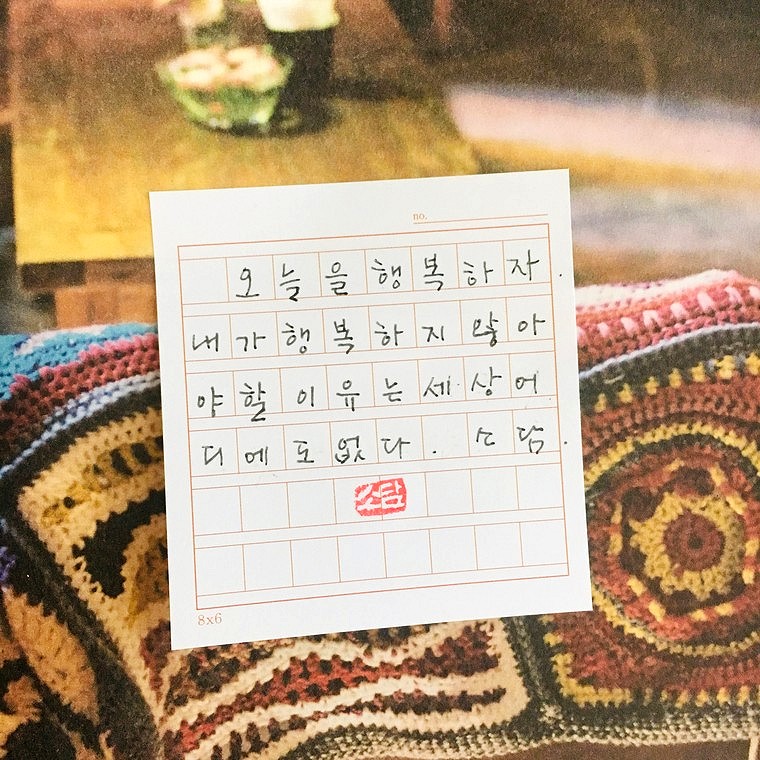 no.
오늘을행복하자.
내가행복하지않아
야할이유는세상어
디에도없다. 소담.
소담
8x6